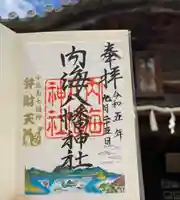 奉拝
令和五年
九月二十五日
内海八幡神社
内海
神社
小豆島七福神
弁財天